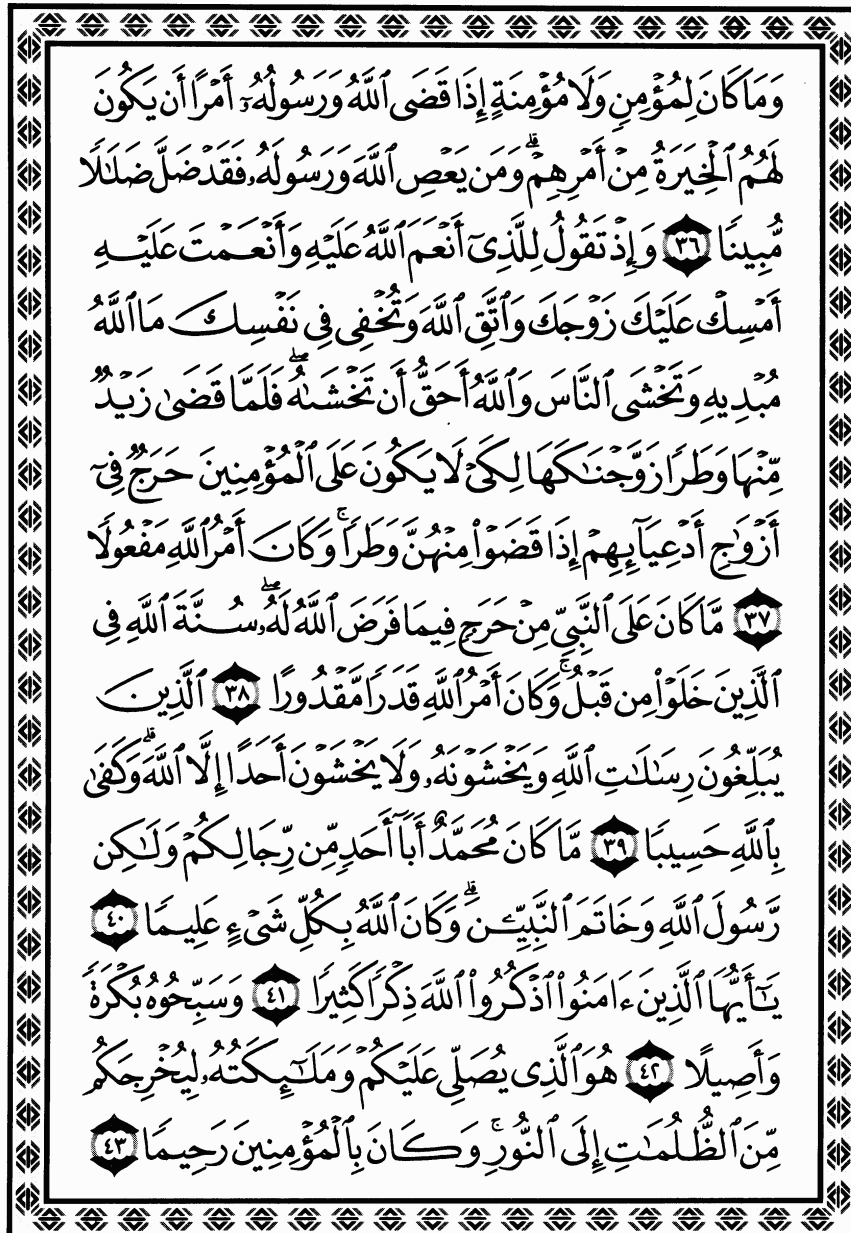 وَمَا كَانَ لِمُؤْمِنٍ وَلَا مُؤْمِنَةٍ إِذَا قَضَى ٱللَّهُ وَرَسُولُهُۥٓ أَمْرًا أَن يَكُونَ
لَهُمُ ٱلْخِيَرَةُ مِنْ أَمْرِهِمْ ۗ وَمَن يَعْصِ ٱللَّهَ وَرَسُولَهُۥ فَقَدْ ضَلَّ ضَلَٰلًا
مُّبِينًا ٣٦ وَإِذْ تَقُولُ لِلَّذِىٓ أَنْعَمَ ٱللَّهُ عَلَيْهِ وَأَنْعَمْتَ عَلَيْهِ
أَمْسِكْ عَلَيْكَ زَوْجَكَ وَٱتَّقِ ٱللَّهَ وَتُخْفِى فِى نَفْسِكَ مَا ٱللَّهُ
مُبْدِيهِ وَتَخْشَى ٱلنَّاسَ وَٱللَّهُ أَحَقُّ أَن تَخْشَىٰهُ ۖ فَلَمَّا قَضَىٰ زَيْدٌ
مِّنْهَا وَطَرًا زَوَّجْنَٰكَهَا لِكَىْ لَا يَكُونَ عَلَى ٱلْمُؤْمِنِينَ حَرَجٌ فِىٓ
أَزْوَٰجِ أَدْعِيَآئِهِمْ إِذَا قَضَوْا۟ مِنْهُنَّ وَطَرًا ۚ وَكَانَ أَمْرُ ٱللَّهِ مَفْعُولًا
٣٧ مَّا كَانَ عَلَى ٱلنَّبِىِّ مِنْ حَرَجٍ فِيمَا فَرَضَ ٱللَّهُ لَهُۥ ۖ سُنَّةَ ٱللَّهِ فِى
ٱلَّذِينَ خَلَوْا۟ مِن قَبْلُ ۚ وَكَانَ أَمْرُ ٱللَّهِ قَدَرًا مَّقْدُورًا ٣٨ ٱلَّذِينَ
يُبَلِّغُونَ رِسَٰلَٰتِ ٱللَّهِ وَيَخْشَوْنَهُۥ وَلَا يَخْشَوْنَ أَحَدًا إِلَّا ٱللَّهَ ۗ وَكَفَىٰ
بِٱللَّهِ حَسِيبًا ٣٩ مَّا كَانَ مُحَمَّدٌ أَبَآ أَحَدٍ مِّن رِّجَالِكُمْ وَلَٰكِن
رَّسُولَ ٱللَّهِ وَخَاتَمَ ٱلنَّبِيِّـۧنَ ۗ وَكَانَ ٱللَّهُ بِكُلِّ شَىْءٍ عَلِيمًا ٤٠
يَٰٓأَيُّهَا ٱلَّذِينَ ءَامَنُوا۟ ٱذْكُرُوا۟ ٱللَّهَ ذِكْرًا كَثِيرًا ٤١ وَسَبِّحُوهُ بُكْرَةً
وَأَصِيلًا ٤٢ هُوَ ٱلَّذِى يُصَلِّى عَلَيْكُمْ وَمَلَٰٓئِكَتُهُۥ لِيُخْرِجَكُم
مِّنَ ٱلظُّلُمَٰتِ إِلَى ٱلنُّورِ ۚ وَكَانَ بِٱلْمُؤْمِنِينَ رَحِيمًا ٤٣